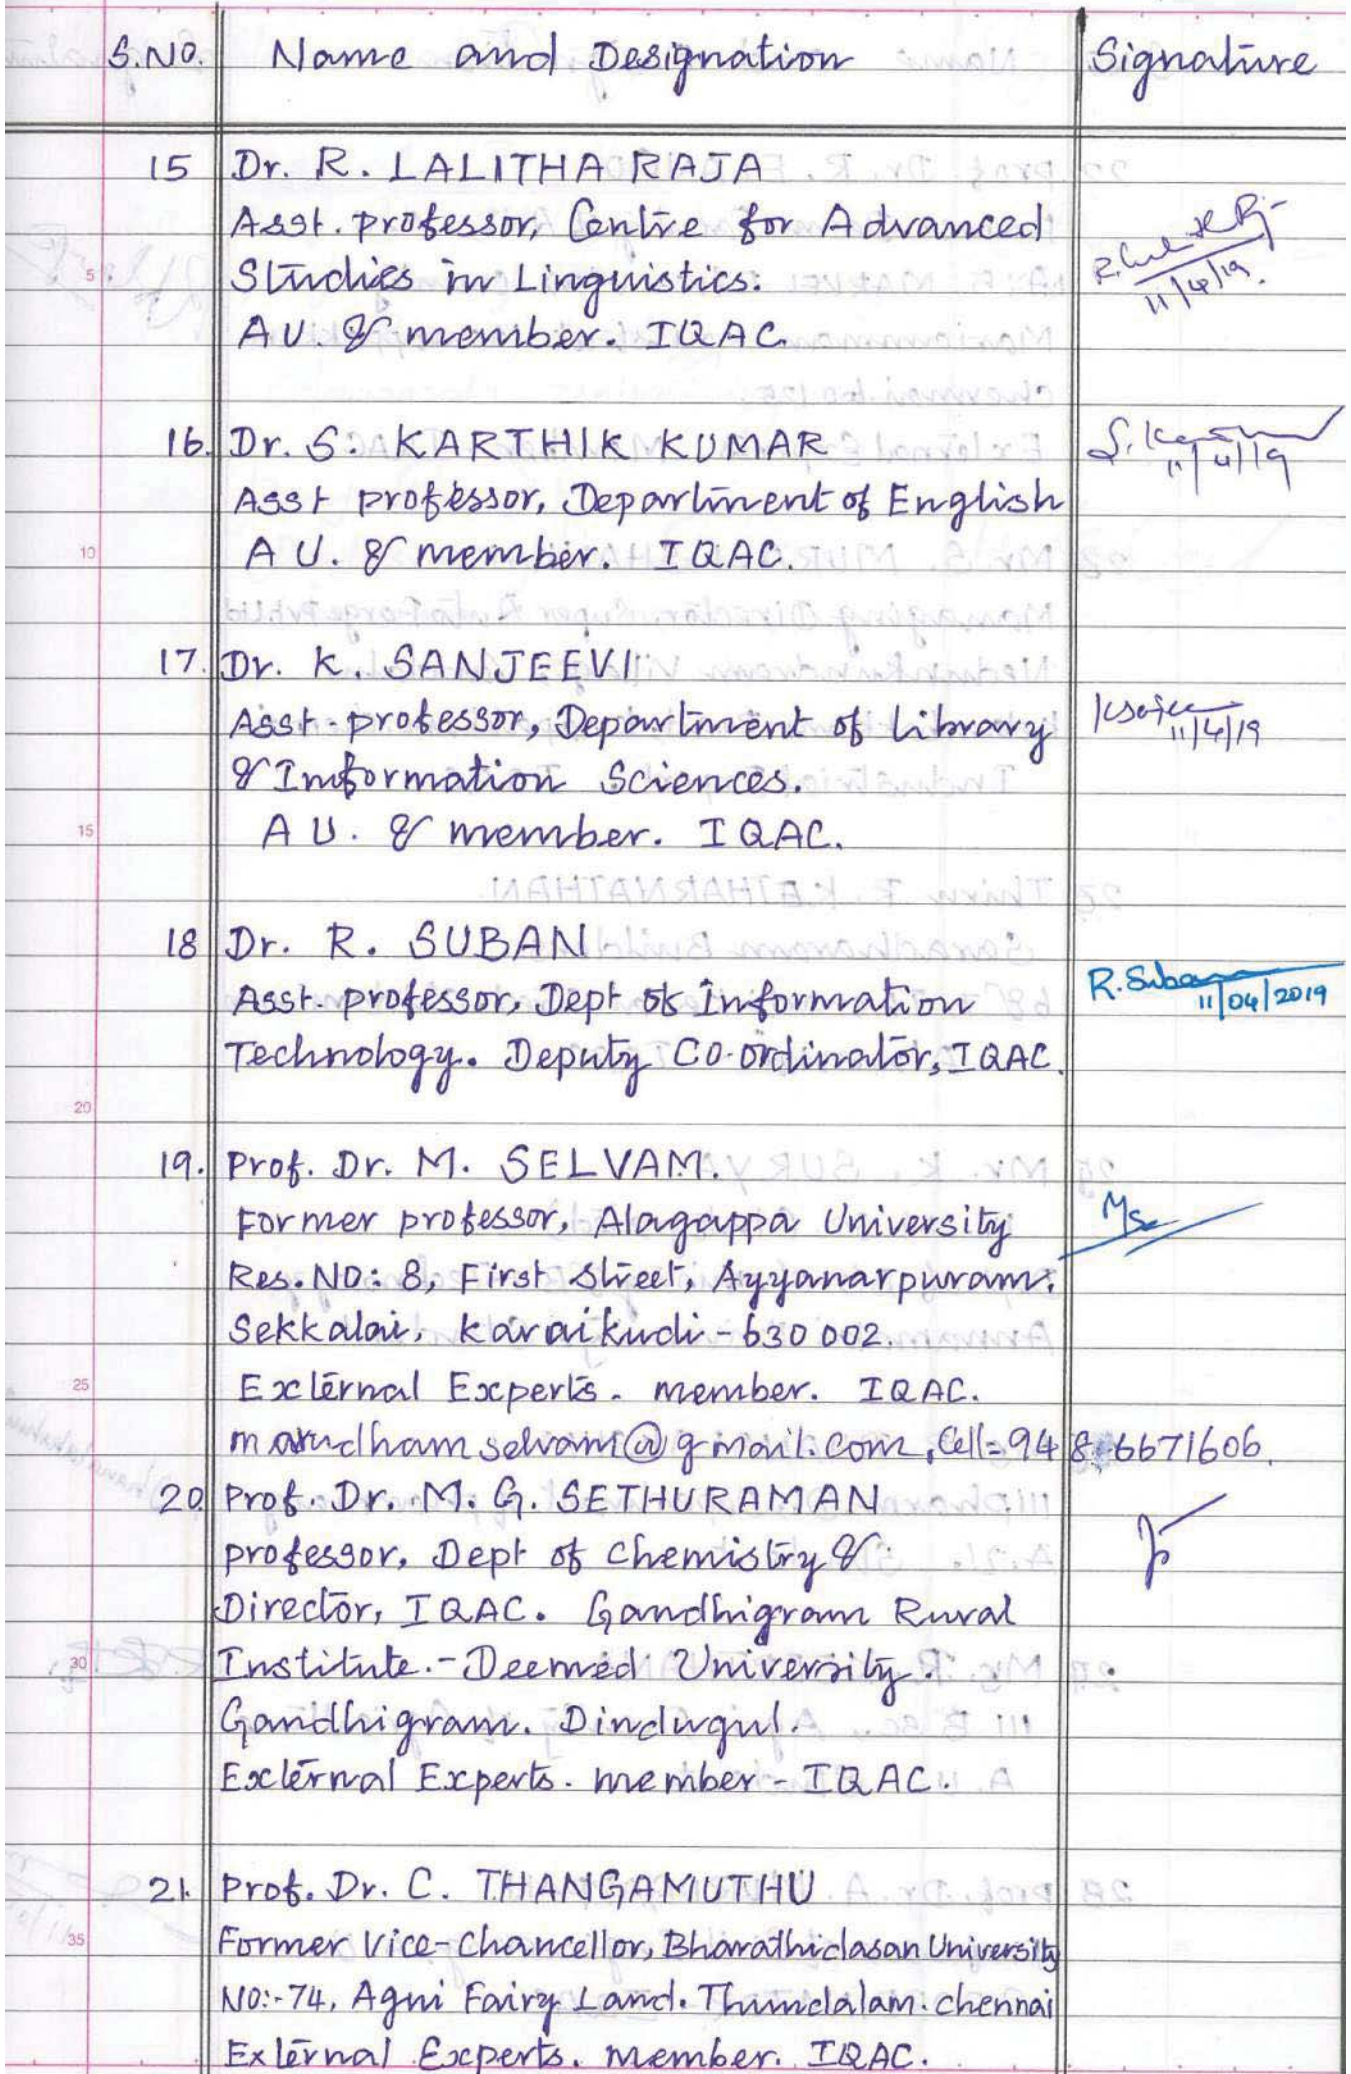 S.NO. Name and Designation Signature
15 Dr. R. LALITHA RAJA
Asst. professor, Centre for Advanced
Studies in Linguistics.
AU. & member. IQAC.
11/4/19.
16. Dr. S. KARTHIK KUMAR
Asst professor, Department of English
AU. & member. IQAC.
11/4/19
17. Dr. K. SANJEEVI
Asst. professor, Department of Library
& Information Sciences.
AU. & member. IQAC.
11/4/19
18 Dr. R. SUBAN
Asst. professor, Dept of Information
Technology. Deputy Co-ordinator, IQAC.
R. Suban
11/04/2019
19. Prof. Dr. M. SELVAM.
Former professor, Alagappa University
Res. NO: 8, First Street, Ayyanarpuram.
Sekkalai, Karaikudi - 630 002.
External Experts. member. IQAC.
marudhamselvam@gmail.com, Cell= 948 6671606.
20. Prof. Dr. M. G. SETHURAMAN
professor, Dept of Chemistry &
Director, IQAC. Gandhigram Rural
Institute. - Deemed University.
Gandhigram. Dindugul.
External Experts. member - IQAC.
21. Prof. Dr. C. THANGAMUTHU
Former Vice-Chancellor, Bharathidasan University
NO:-74, Agni Fairy Land. Thundalam. chennai
External Experts. member. IQAC.
5
10
15
20
25
30
35